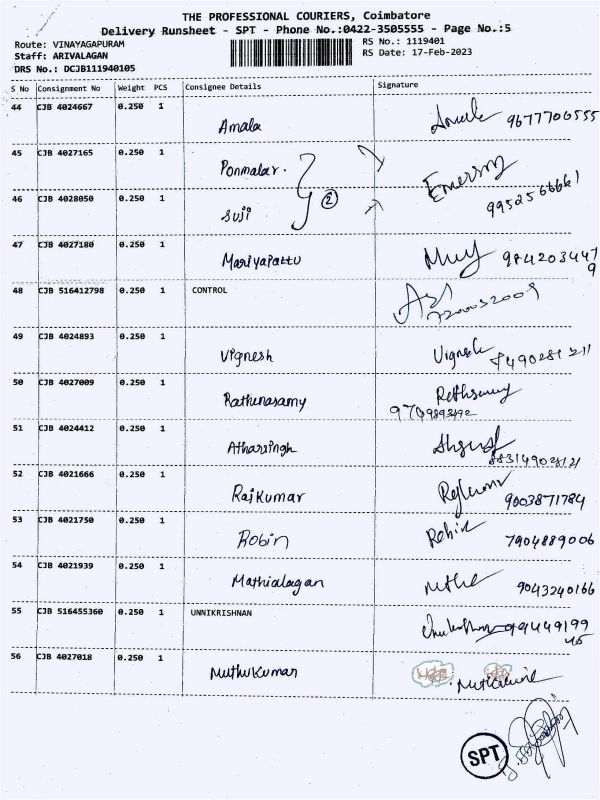 THE PROFESSIONAL COURIERS, Coimbatore
Delivery Runsheet - SPT - Phone No.:0422-3505555 - Page No.:5
Route: VINAYAGAPURAM RS No.: 1119401
Staff: ARIVALAGAN RS Date: 17-Feb-2023
DRS No.: DCJB111940105
S No Consignment No Weight PCS Consignee Details Signature
44 CJB 4024667 0.250 1 Amala 9677706555
45 CJB 4027165 0.250 1 Ponmalar.
46 CJB 4028050 0.250 1 Suji 2 Emerson
47 CJB 4027180 0.250 1 Mariyapattu 9842034479
48 CJB 516412798 0.250 1 CONTROL
49 CJB 4024893 0.250 1 Vignesh Vignesh
50 CJB 4027009 0.250 1 Rathunasamy
51 CJB 4024412 0.250 1 Atharsingh
52 CJB 4021666 0.250 1 Rajkumar 9003871784
53 CJB 4021750 0.250 1 Robin Robin 7904889006
54 CJB 4021939 0.250 1 Mathialagan 9043240166
55 CJB 516455360 0.250 1 UNNIKRISHNAN
56 CJB 4027018 0.250 1 Muthukumar
SPT